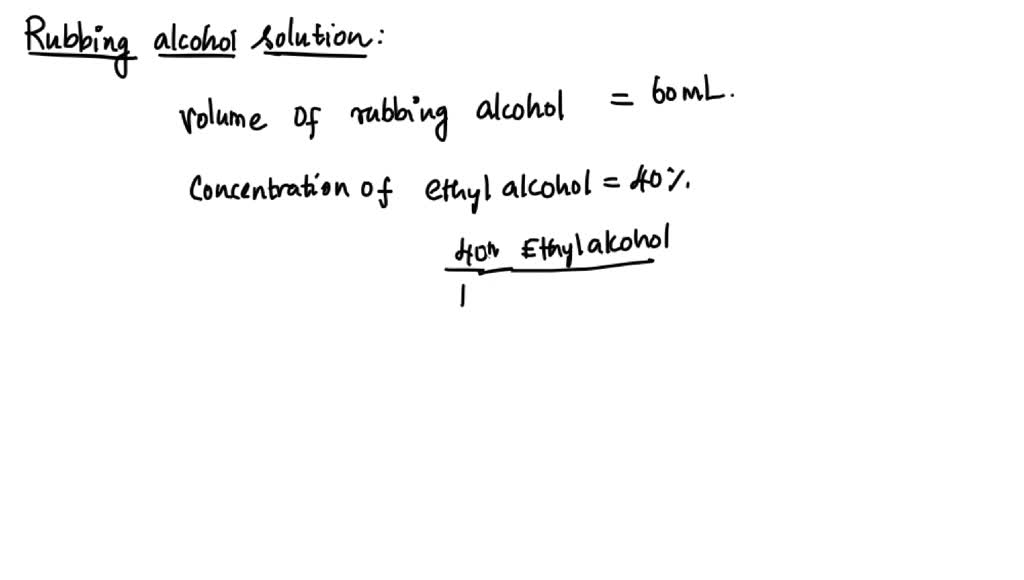 Rubbing alcohol solution:
volume of rubbing alcohol = 60mL.
Concentration of ethyl alcohol = 40%.
40m Ethylalcohol
1